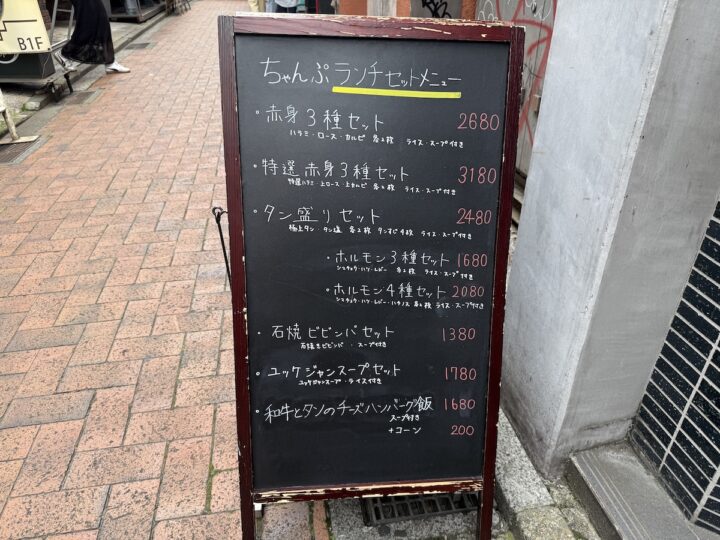 B1F
ちゃんぷランチセットメニュー
・赤身3種セット 2680
ハラミ・ロース・カルビ 各2枚 ライス・スープ付き
・特選赤身3種セット 3180
特選ハラミ・上ロース・上カルビ 各2枚 ライス・スープ付き
・タン盛りセット 2480
極上タン・タン塩 各2枚 タンすじ4枚 ライス・スープ付き
・ホルモン3種セット 1680
シマチョウ・ハツ・レバー 各2枚 ライス・スープ付き
・ホルモン4種セット 2080
シマチョウ・ハツ・レバー・ハチノス 各2枚 ライス・スープ付き
・石焼ビビンバセット 1380
石焼きビビンバ・スープ付き
・ユッケジャンスープセット 1780
ユッケジャンスープ・ライス付き
・和牛とタンのチーズハンバーグ飯 1680
スープ付き
+コーン 200